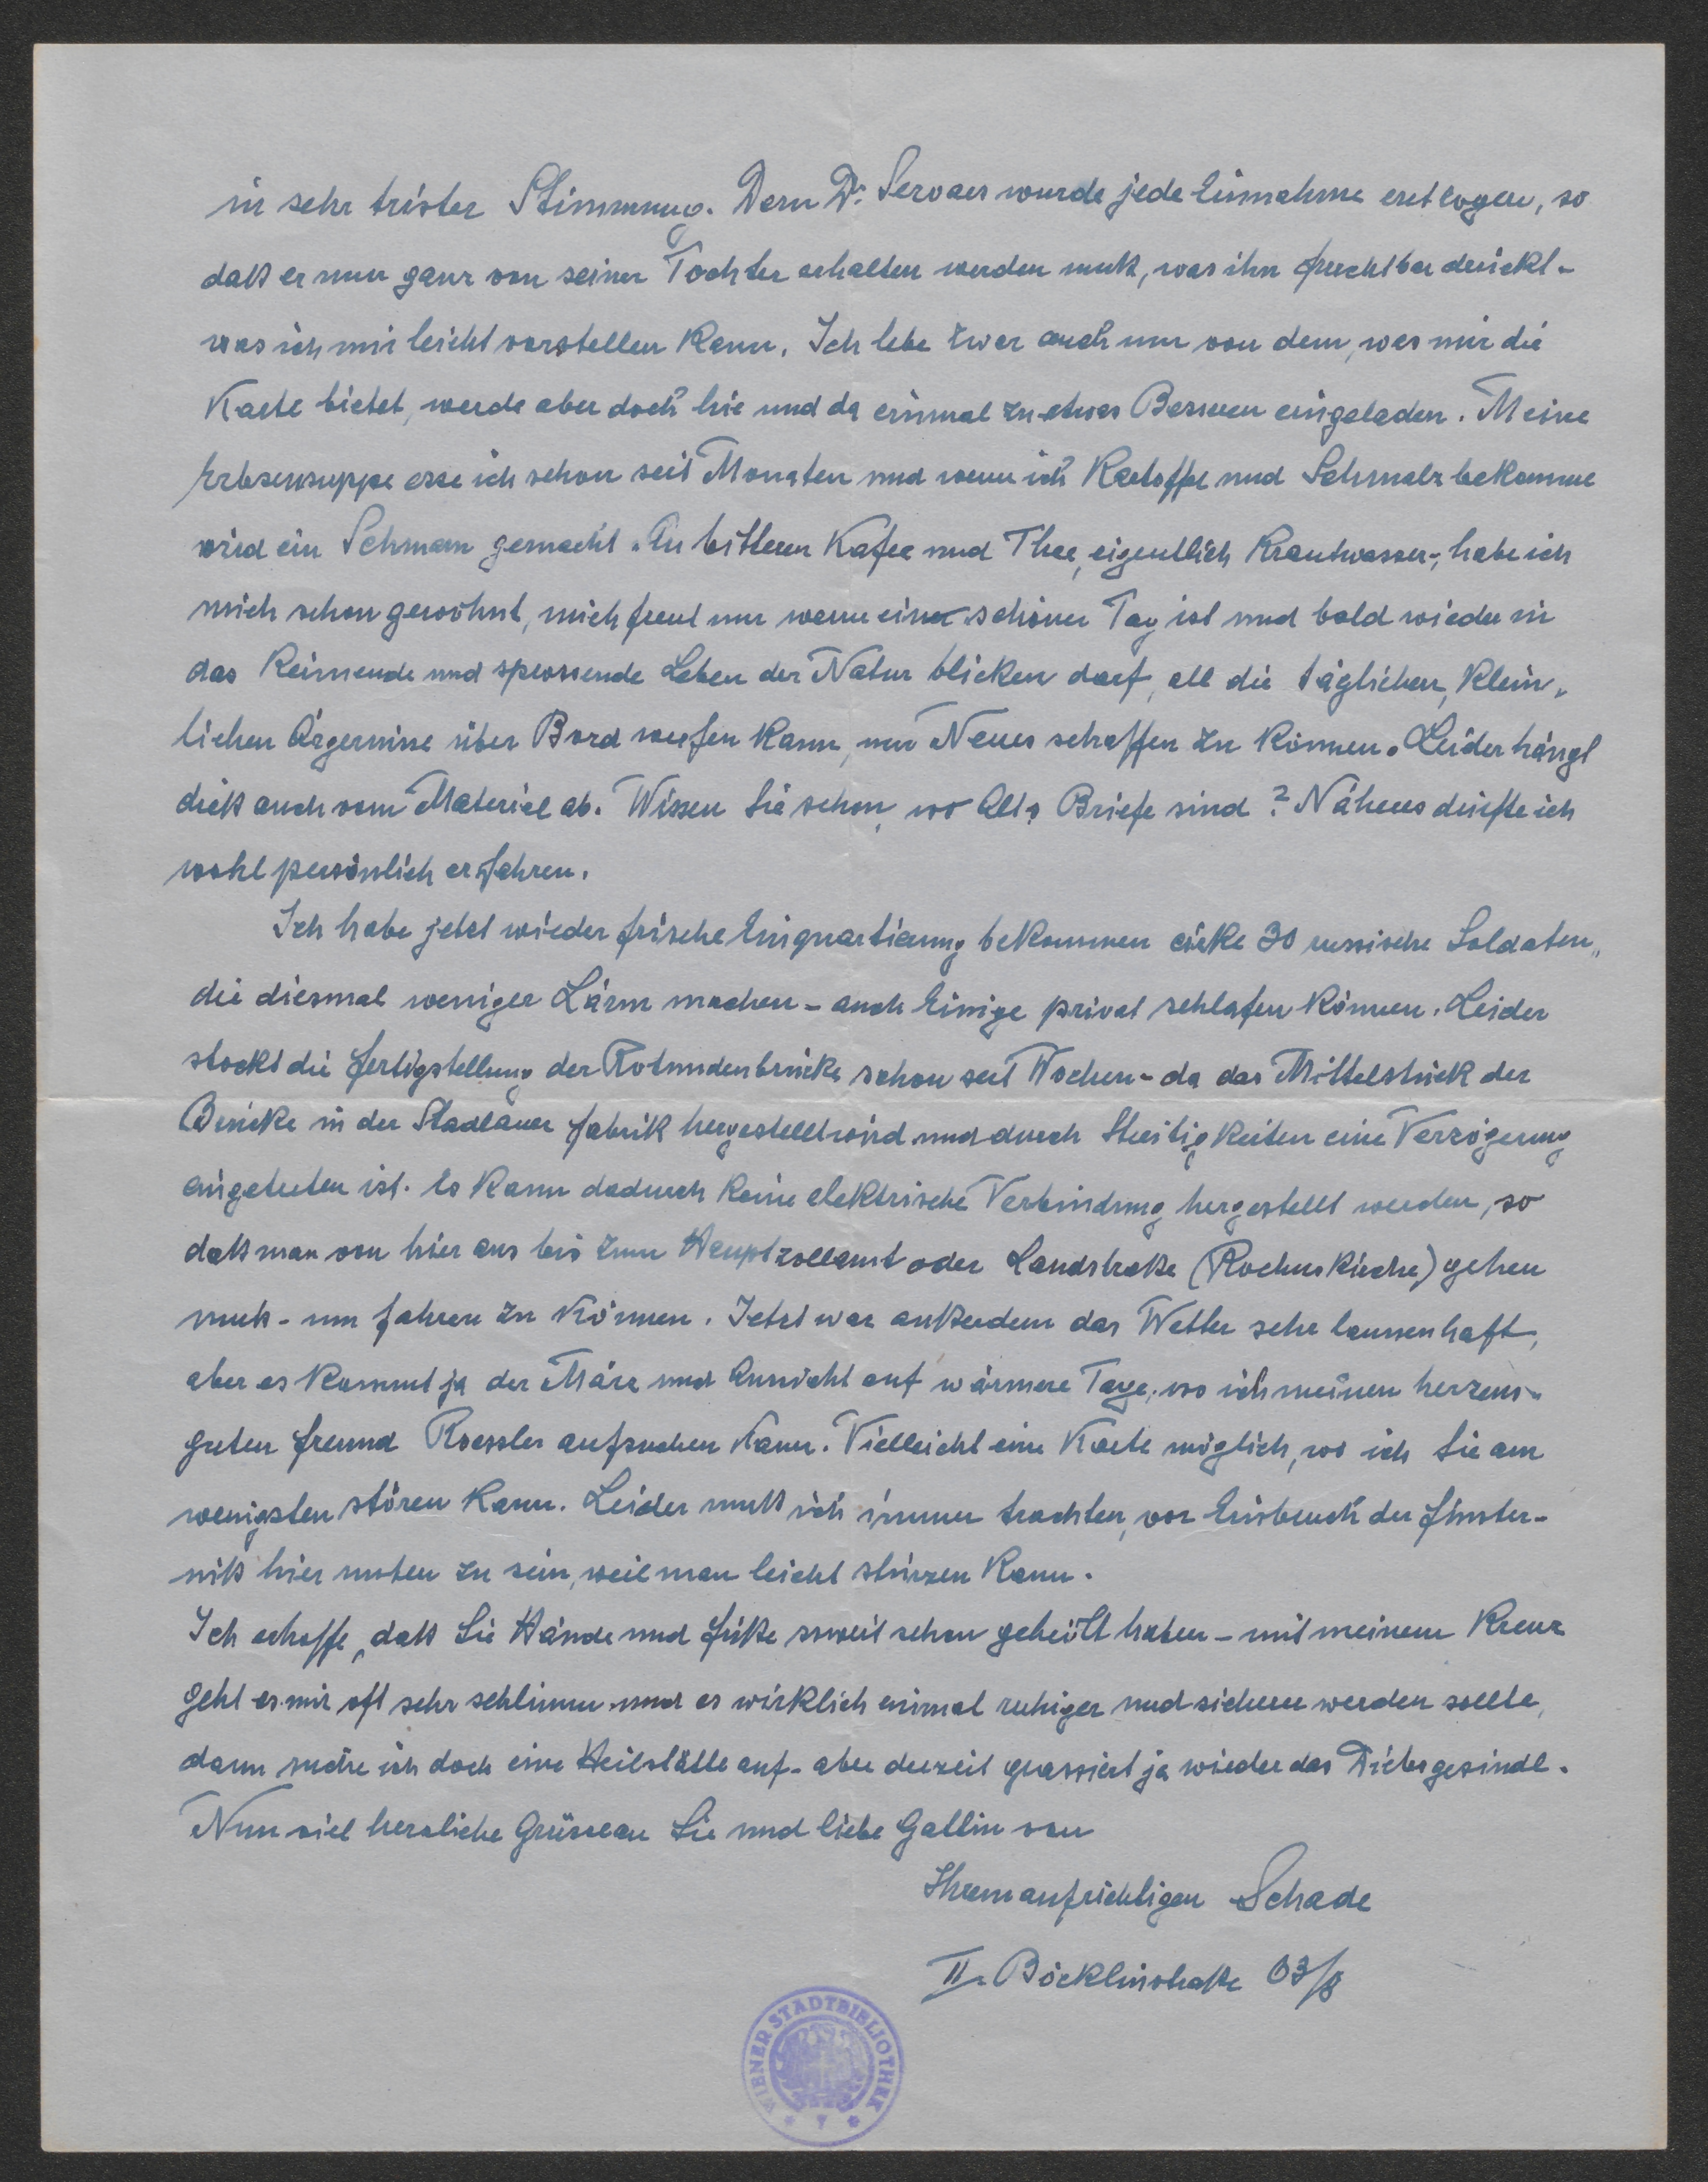 in sehr trister Stimmung. Dem Dr. Servaes wurde jede Einnahme entzogen, so
daß er nun ganz von seiner Tochter erhalten werden muß, was ihn furchtbar drückt -
was ich mir leicht vorstellen kann. Ich lebe zwar auch nur von dem, was mir die
Karte bietet, werde aber doch hie und da einmal zu etwas Besseren eingeladen. Meine
Erbsensuppe esse ich schon seit Monaten und wenn ich Kartoffel und Schmalz bekomme
wird ein Schmarn gemacht. An bitteren Kafee und Thee, eigentlich Krautwasser-, habe ich
mich schon gewöhnt, mich freut nur wenn ein schöner Tag ist und bald wieder in
das keimende und sprossende Leben der Natur blicken darf, all die täglichen, klein-
lichen Ärgernisse über Bord werfen kann, um Neues schaffen zu können. Leider hängt
dieß auch vom Material ab. Wissen Sie schon, wo Alts Briefe sind? Näheres dürfte ich
wohl persönlich erfahren.
Ich habe jetzt wieder frische Einquartierung bekommen cirka 30 russische Soldaten,
die diesmal weniger Lärm machen - auch Einige privat schlafen können. Leider
stockt die Fertigstellung der Rotundenbrücke schon seit Wochen - da das Mittelstück der
Brücke in der Stadlauer Fabrik hergestellt wird und durch Streitigkeiten eine Verzögerung
eingetreten ist. Es kann dadurch keine elektrische Verbindung hergestellt werden, so
daß man von hier aus bis zum Hauptzollamt oder Landstraße (Rochuskirche) gehen
muß - um fahren zu können. Jetzt war außerdem das Wetter sehr launenhaft,
aber es kommt ja der März und Aussicht auf wärmere Tage, wo ich meinen herzens-
guten Freund Roessler aufsuchen kann. Vielleicht eine Karte möglich, wo ich Sie am
wenigsten stören kann. Leider muß ich immer trachten, vor Einbruch der Finster-
niß hier unten zu sein, weil man leicht stürzen kann.
Ich erhoffe, daß Sie Hände und Füße soweit schon geheilt haben - mit meinem Kreuz
geht es mir oft sehr schlimm und es wirklich einmal ruhiger und sicherer werden sollte,
dann suche ich doch eine Heilstätte auf - aber derzeit grassiert ja wieder das Diebsgesindl.
Nun viel herzliche Grüsse an Sie und liebe Gattin von
Ihrem aufrichtigen Schade
II. Böcklinstraße 63/8
WIENER STADTBIBLIOTHEK